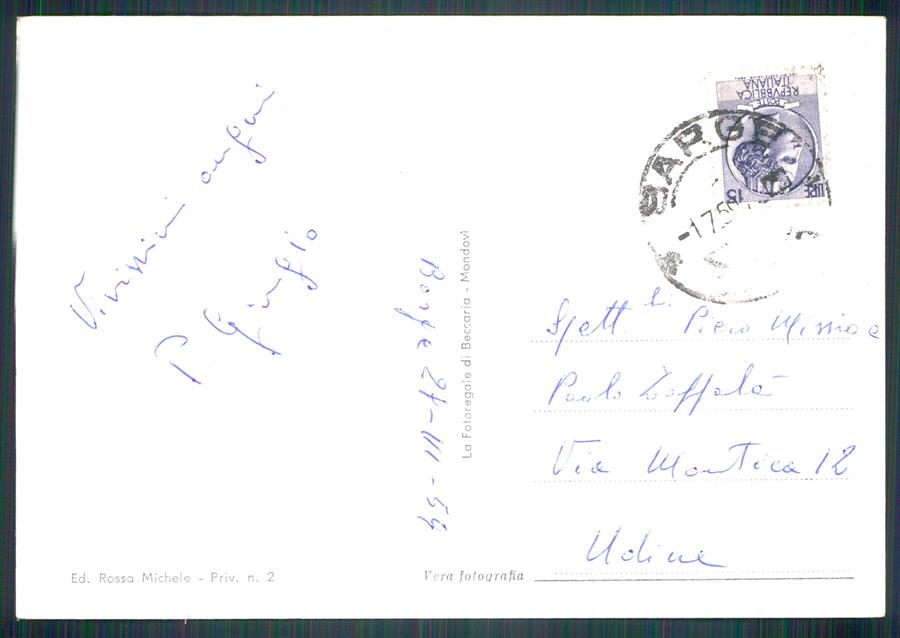 Vivissimi auguri
P. Giorgio
Barge 27-VI-59
La Fotoregale di Beccaria - Mondovì
POSTE
REPVBBLICA
ITALIANA
LIRE 15
BARGE
-1.7.59
Spett.
Piero Missio e
Paolo Zoffalà
Via Mantica 12
Udine
Ed. Rossa Michele - Priv. n. 2
Vera fotografia